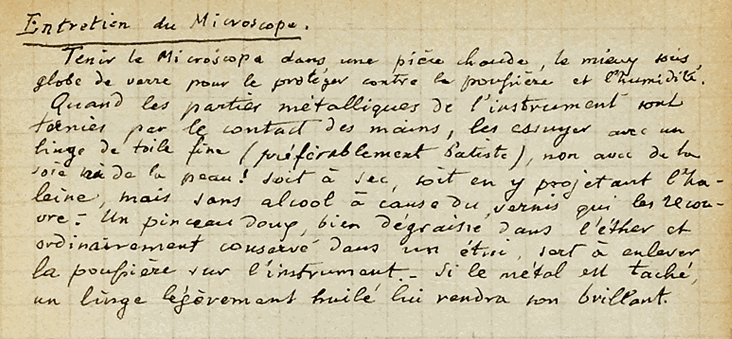 Entretien du Microscope.
Tenir le Microscope dans une pièce chaude, le mieux sous
globe de verre pour le protéger contre la poussière et l'humidité.
Quand les parties métalliques de l'instrument sont
ternies par le contact des mains, les essuyer avec un
linge de toile fine (préférablement Batiste), non avec de la
soie ni de la peau! soit à sec, soit en y projetant l'ha-
leine, mais sans alcool à cause du vernis qui les recou-
vre. - Un pinceau doux, bien dégraissé dans l'éther et
ordinairement conservé dans un étui, sert à enlever
la poussière sur l'instrument - Si le métal est taché,
un linge légèrement huilé lui rendra son brillant.